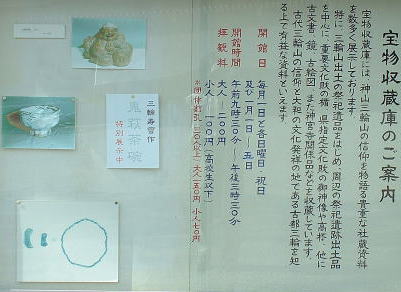 宝物収蔵庫のご案内
宝物収蔵庫には、神山三輪山の信仰を物語る貴重な社蔵資料
を数多く展示しております。
特に三輪山出土の祭祀遺品をはじめ、周辺の祭祀遺跡出土品
を中心に、重要文化財の楯、県指定文化財の御神像や高杯、他に
古文書、鏡、古絵図、また神宮寺関係品などを収蔵しています。
古代三輪山の信仰と大和の文化発祥の地である古都三輪を知
る上で有益な資料といえます。
開館日
毎月一日と各日曜日・祝日
及び一月一日～五日
開館時間
午前九時三〇分～午後三時三〇分
拝観料
大人 二〇〇円
小人 一〇〇円(高校生以下)
三輪寿雪作
鬼萩茶碗
特別展示中